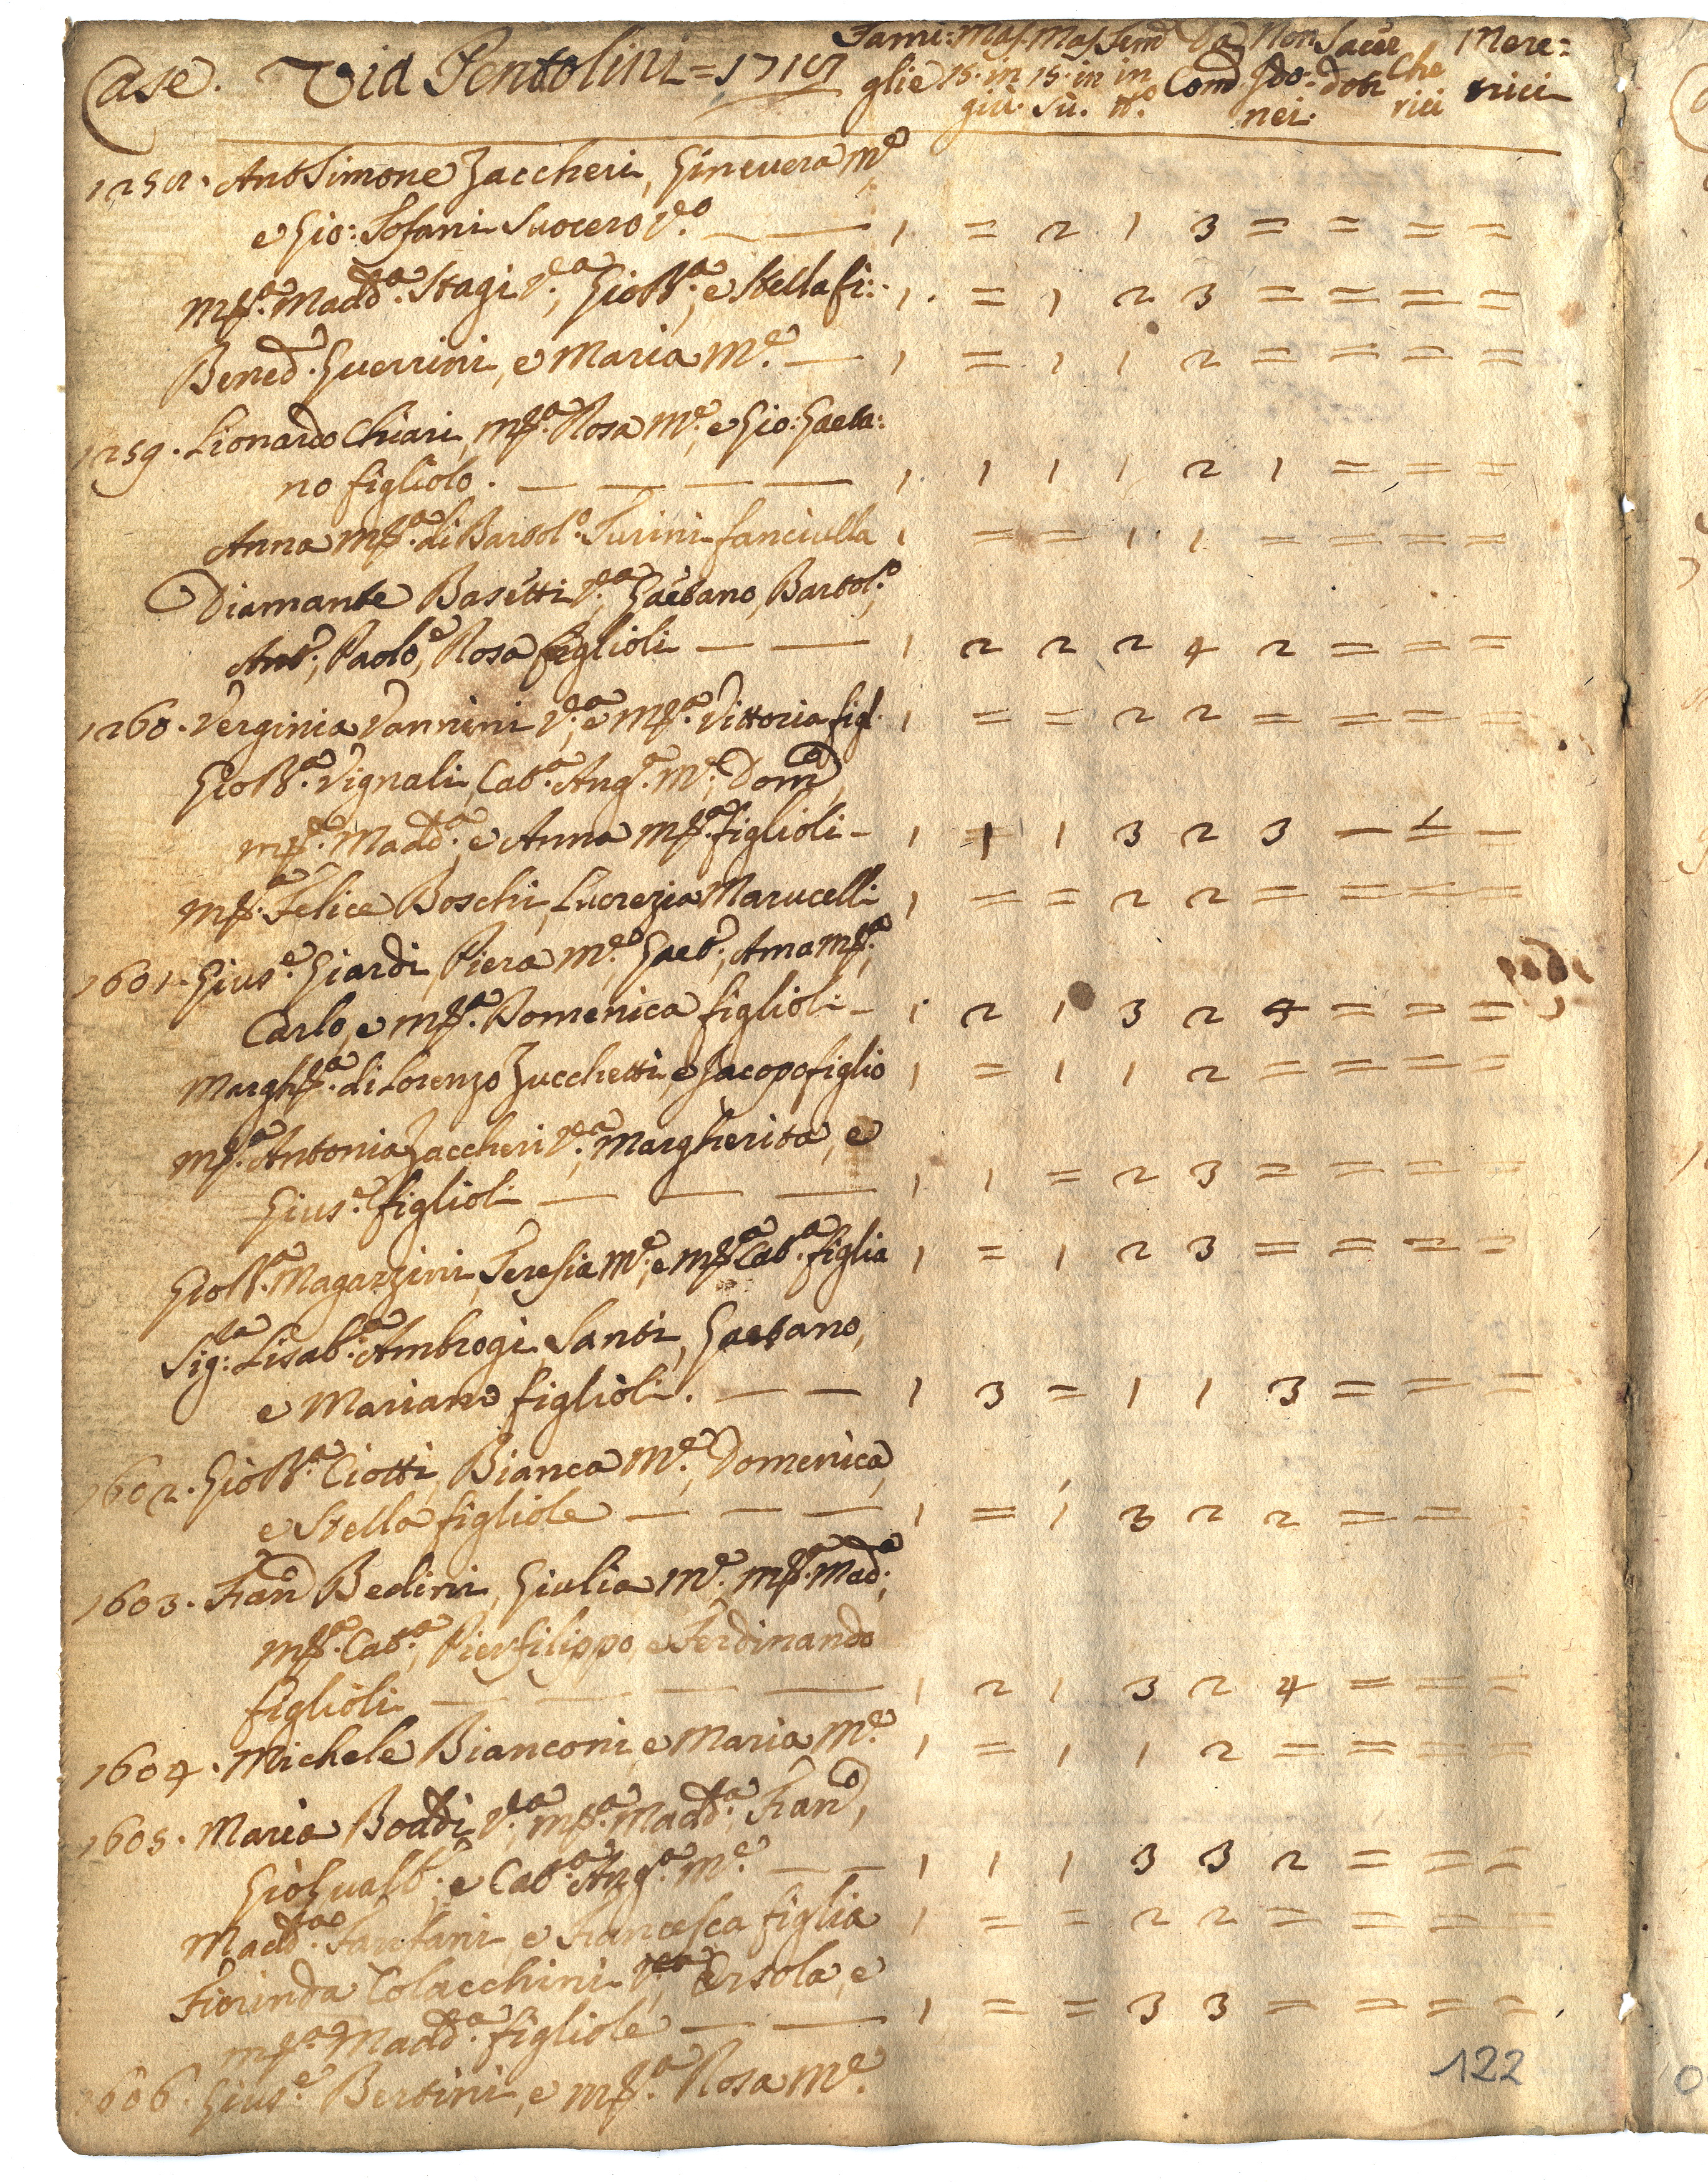 Case. Via Pentolini = 1717 Fami: Mas. Mas. Fem. Da Non Sacer Che Mere:
glie 15. in 15. in in Com. Ido: doti rici trici
giù. sù. n.o nei.
1258. Ant. Simone Zaccheri, Ginevera M.e
e Gio: Sofani Suocero V.o — — 1 = 2 1 3 = = = =
M.a Madd.a Stagi V.a, Gio B.a, e Stella fi: 1. = 1 2 3 = = = =
Bened. Guerrini, e Maria M.e — 1 = 1 1 2 = = = =
1259. Lionardo Chiari, M.a Rosa M.e, e Gio: Gaeta:
no figliolo. — — — — 1. 1 1 1 2 1 = = =
Anna M.a di Bartol.o Turini fanciulla 1 = = 1 1 = = = =
Diamante Basetti V.a, Gaetano, Bartol.o,
Ant.o, Paolo, e Rosa figlioli — — 1 2 2 2 4 2 = = =
1260. Verginia Vannini V.a, e M.a Vittoria figl. 1 = = 2 2 = = = =
Gio B.a Vignali, Cat.a Ang.a M.e, Dom.o,
M.a Madd.a, e Anna M.a figlioli — 1 1 1 3 2 3 — = —
M.a Felice Boschi, Lucrezia Marucelli 1 = = 2 2 = = = =
1601. Gius.e Giardi, Piera M.e, Gaet.o, Anna M.a,
Carlo, e M.a Domenica figlioli — 1 2 1 3 2 4 = = =
Margh.a di Lorenzo Zucchetti, e Jacopo figlio 1 = 1 1 2 = = = =
M.a Antonia Zaccheri V.a, Margherita, e
Gius.e figlioli — — — 1 1 = 2 3 = = = =
Gio B.a Magazzini, Teresia M.e, e M.a Cat.a figlia 1 = 1 2 3 = = = =
Sig.ra Lisab.a Ambrogi, Santi, Gaetano,
e Mariano figlioli. — — 1 3 = 1 1 3 = = =
1602. Gio B.a Ciotti, Bianca M.e, Domenica,
e Stella figliole — — — 1 = 1 3 2 2 = = =
1603. Fran.o Bedini, Giulia M.e, M.a Mad.a,
M.a Cat.a, Pierfilippo, e Ferdinando
figlioli — — — — 1 2 1 3 2 4 = = =
1604. Michele Bianconi, e Maria M.e 1 = 1 1 2 = = = =
1605. Maria Boddi V.a, M.a Madd.a, Fran.o,
Gio Gualb.o, e Cat.a Ang.a M.e — — 1 1 1 3 3 2 = = =
Madd.a Fantani, e Francesca figlia 1 = = 2 2 = = = =
Fiorinda Colacchini V.a, Orsola, e
M.a Madd.a figliole — — 1 = = 3 3 = = = =
1606. Gius.e Bertini, e M.a Rosa M.e
122